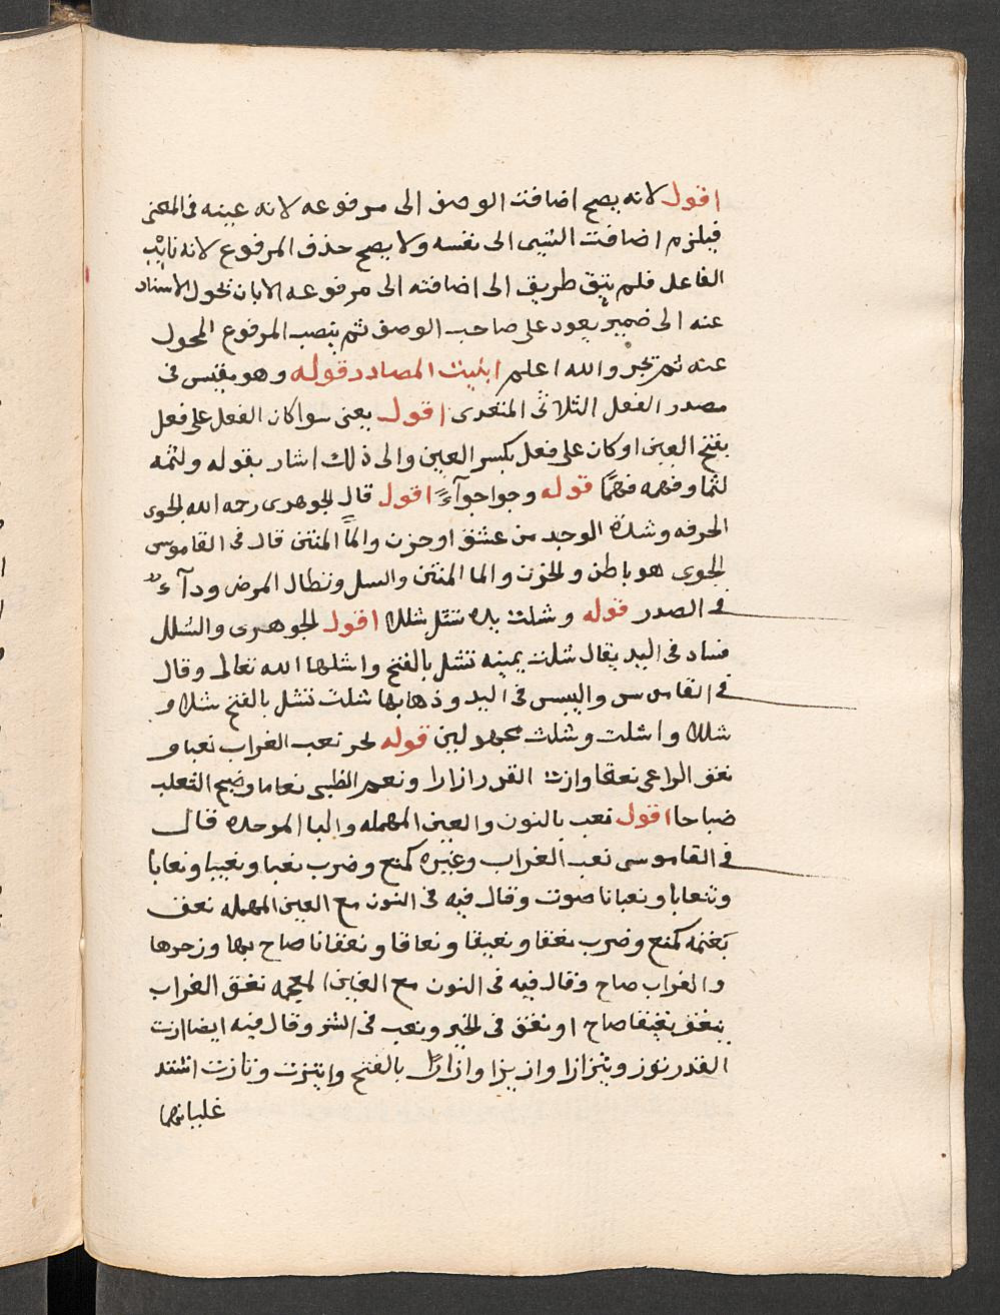 اقول لانه يصح اضافت الوصف الى مرفوعه لانه عينه فى المعنى
فيلزم اضافت الشيى الى نفسه ولا يصح حذف المرفوع لانه نايب
الفاعل فلم يبق طريق الى اضافته الى مرفوعه الا بان تحول الاسناد
عنه الى ضمير يعود على صاحب الوصف ثم ينصب المرفوع المحول
عنه ثم تجر والله اعلم ابنيت المصادر قوله وهو يقيس فى
مصدر الفعل الثلاثى المتعدى اقول يعنى سوا كان الفعل على فعل
بفتح العين او كان على فعل بكسر العين والى ذلك اشار بقوله ولثمه
لثما وفهمه فهمًا قوله وجوا جوآءً اقول قال الجوهرى رحه الله الجوى
الحرقه وشدة الوجد من عشق او حزن والمآ المنتن قال فى القاموس
الجوى هو باطن والحزن والما المنتن والسل وتطال المرض ودآء
فى الصدر قوله وشلت يده تشل شللا اقول الجوهرى والشلل
فساد فى اليد يقال شلت يمينه تشل بالفتح واشلها الله تعالى وقال
فى القاموس واليبس فى اليد وذهابها شلت تشل بالفتح شلا و
شللا واشلت وشلت مجهولين قوله نحو نعب الغراب نعبا و
نعق الراعى نعقا وازت القدر ازازا ونعم الظبى نعاما وضبح الثعلب
ضباحا اقول نعب بالنون والعين المهمله والبا الموحده قال
فى القاموس نعب الغراب وغيره كمنع وضرب نعبا ونعيبا ونعابا
وتنعابا ونعبانا صوت وقال فيه فى النون مع العين المهمله نعق
بغنمه كمنع وضرب نعقا ونعيقا ونعاقا ونعقانا صاح بها وزجرها
والغراب صاح وقال فيه فى النون مع الغين المعجمه نغق الغراب
ينغق نغيقا صاح او نغق فى الخير ونعب فى الشر وقال فيه ايضا ازت
القدر تؤز وتئز ازا وازيزا وازازًا بالفتح وايتزت وتازت اشتد
غليانها